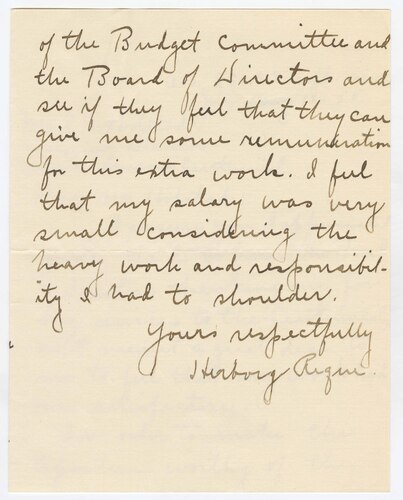 of the Budget Committee and
the Board of Directors and
see if they feel that they can
give me some remuneration
for this extra work. I feel
that my salary was very
small considering the
heavy work and responsibil-
ity I had to shoulder.
Yours respectfully
Herborg Reque.